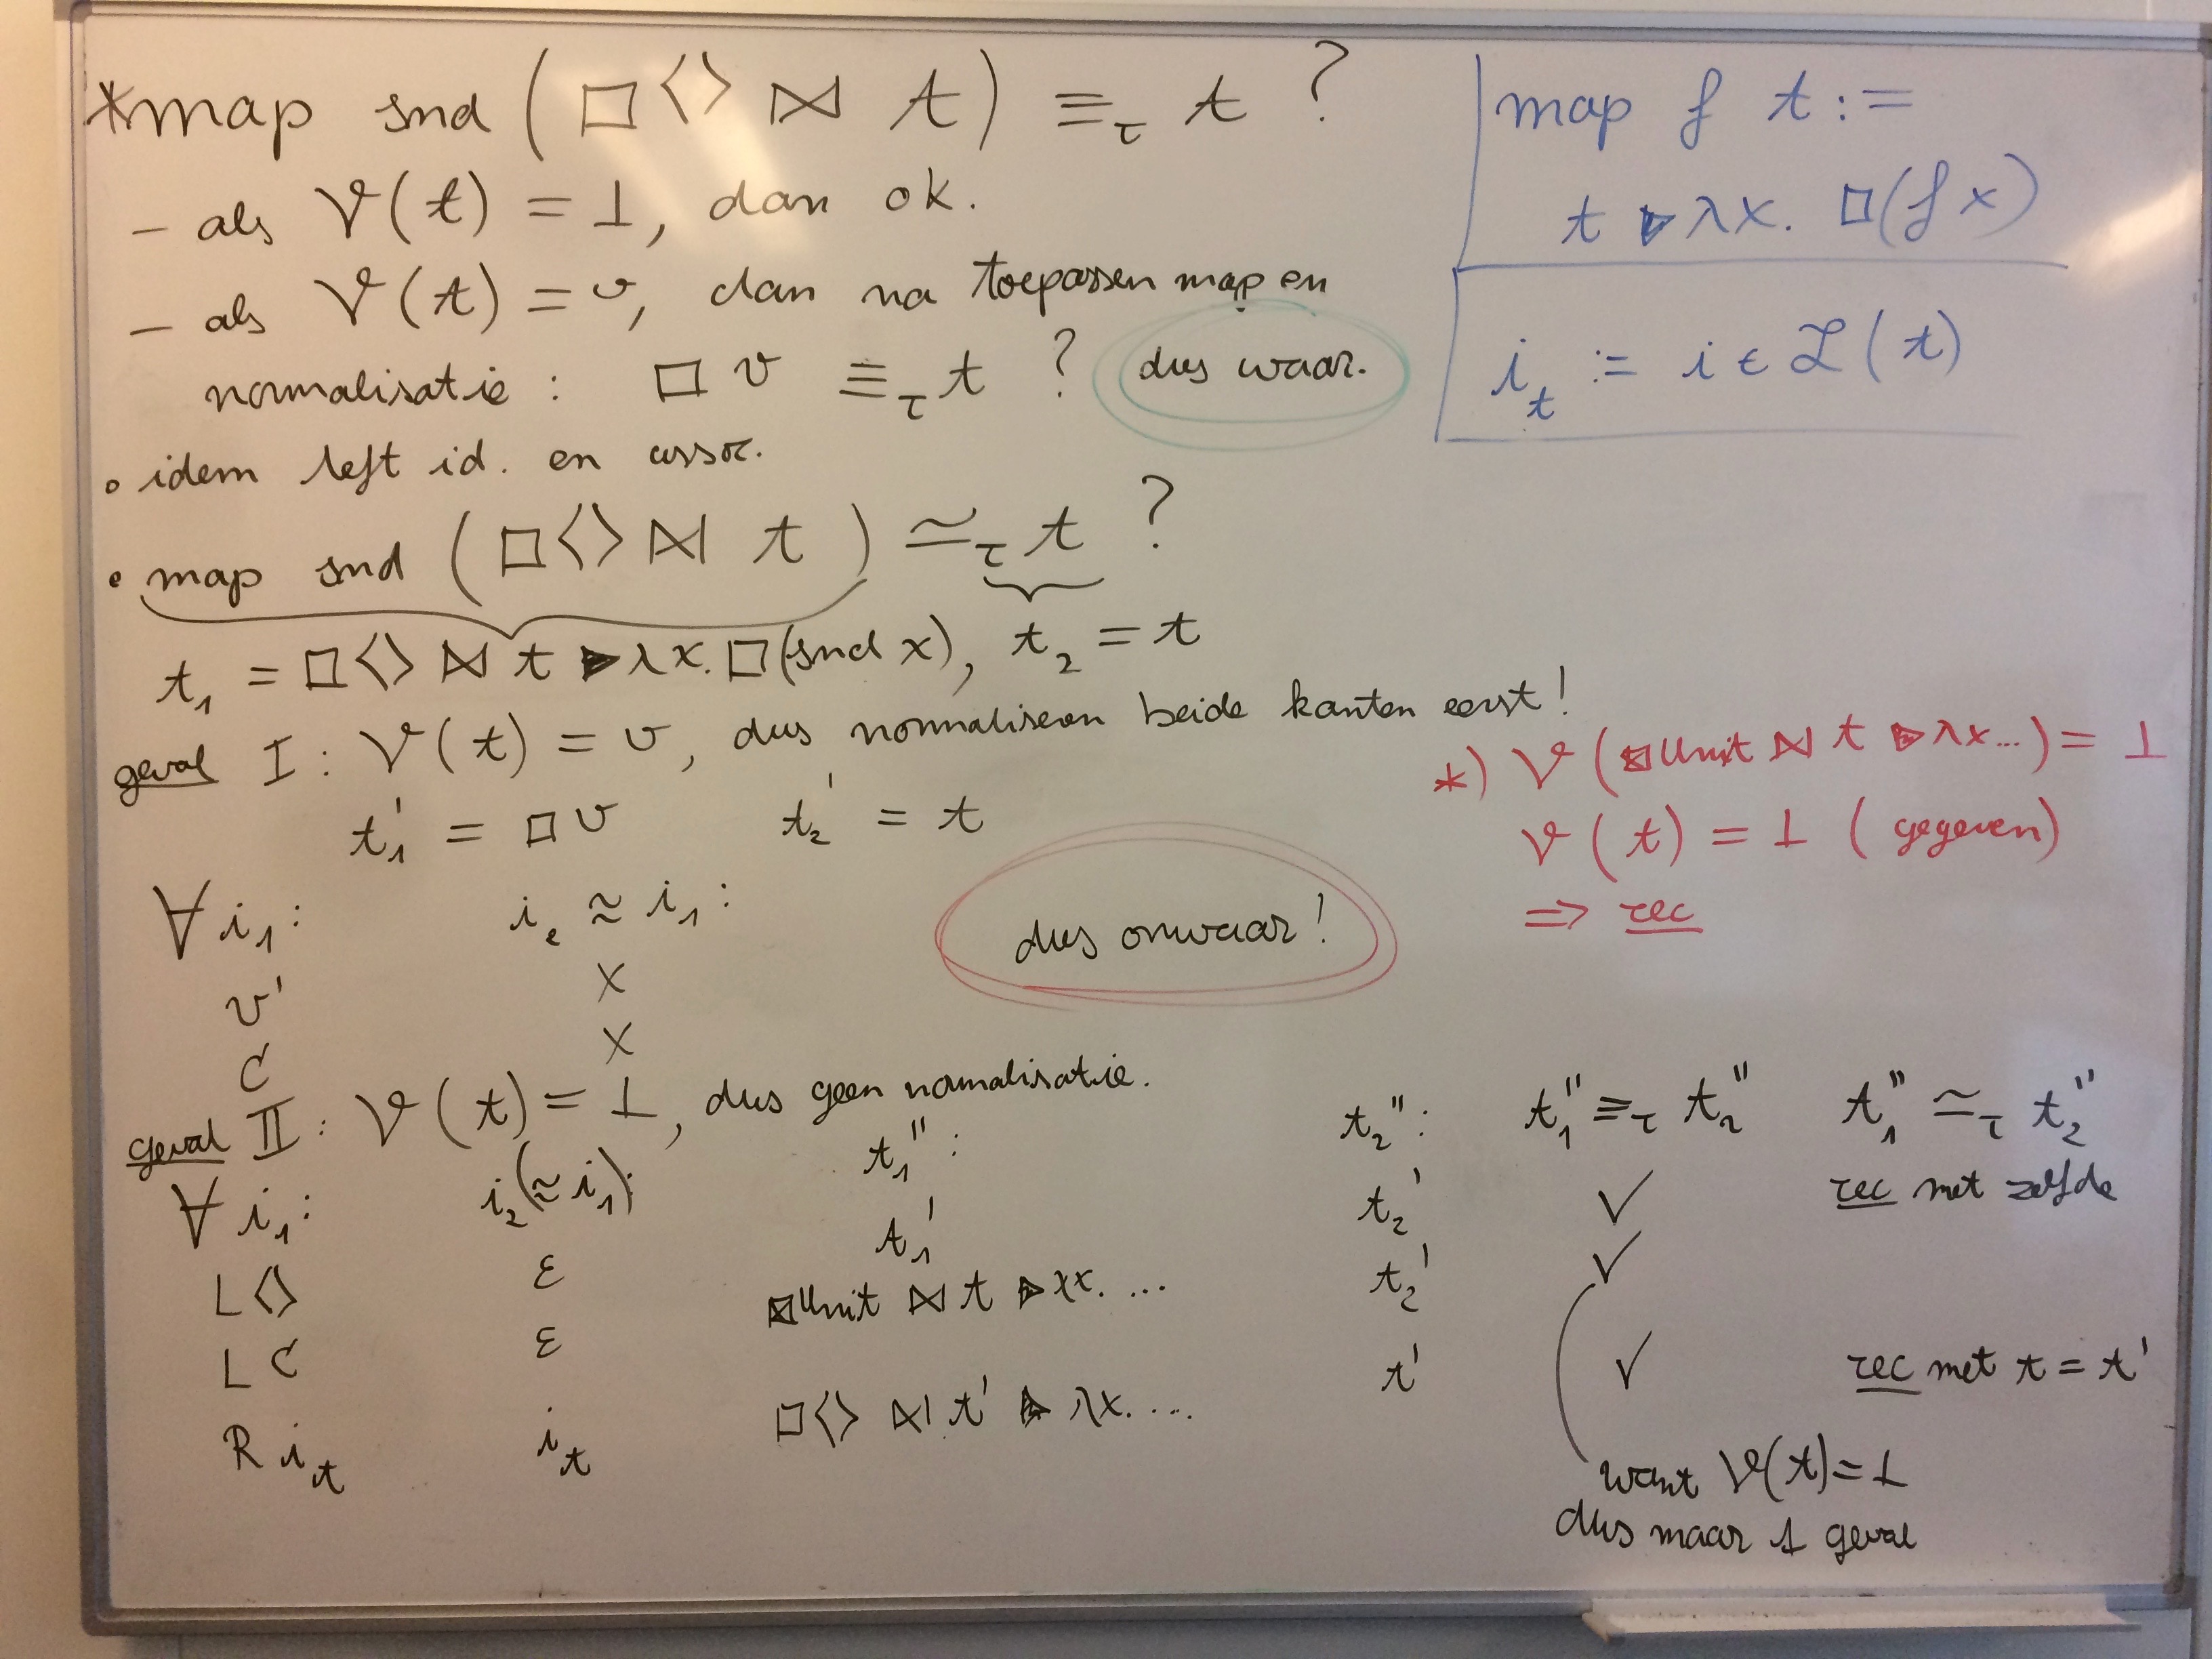 *map snd (□⟨⟩ ⋈ t) ≡τ t ?
– als 𝒱(t) = ⊥, dan ok.
– als 𝒱(t) = v, dan na toepassen map en
normalisatie : □ v ≡τ t ? dus waar.
∘ idem left id. en assoc.
• map snd (□⟨⟩ ⋈ t) ≃τ t ?
t₁ = □⟨⟩ ⋈ t ▶ λx. □(snd x), t₂ = t
geval I : 𝒱(t) = v, dus normaliseren beide kanten eerst!
t₁' = □ v t₂' = t
∀ i₁ : i₂ ≈ i₁ :
v' x
C x
dus onwaar!
geval II : 𝒱(t) = ⊥, dus geen normalisatie.
∀ i₁ : i₂(≈ i₁): t₁'' : t₂'' : t₁'' ≡τ t₂'' t₁'' ≃τ t₂''
L ⟨⟩ ε t₁' t₂' ✓ rec met zelfde
L C ε ⊠Unit ⋈ t ▶ λx. ... t₂' ✓
R iₜ iₜ □⟨⟩ ⋈ t' ▶ λx. ... t' ✓ rec met t = t'
want 𝒱(t) = ⊥
dus maar 1 geval
map f t :=
t ▶ λx. □(f x)
iₜ := i ∈ ℐ(t)
*) 𝒱(⊠Unit ⋈ t ▶ λx...) = ⊥
𝒱(t) = ⊥ (gegeven)
=> rec